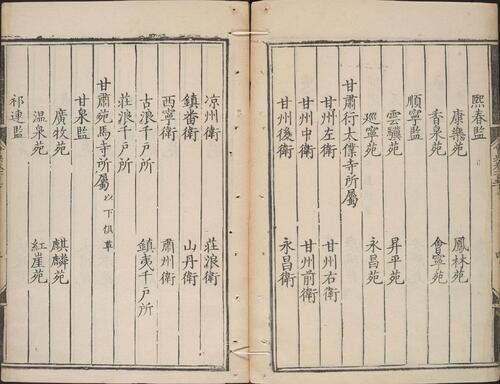 熙春監
康樂苑 鳳林苑
香泉苑 會寧苑
順寧監
雲驥苑 昇平苑
巡寧苑 永昌苑
甘肅行太僕寺所屬
甘州左衛 甘州右衛
甘州中衛 甘州前衛
甘州後衛 永昌衛
凉州衛 莊浪衛
鎮番衛 山丹衛
西寧衛 肅州衛
古浪千戶所 鎮夷千戶所
莊浪千戶所
甘肅苑馬寺所屬 以下俱革
甘泉監
廣牧苑 麒麟苑
溫泉苑 紅崖苑
祁連監